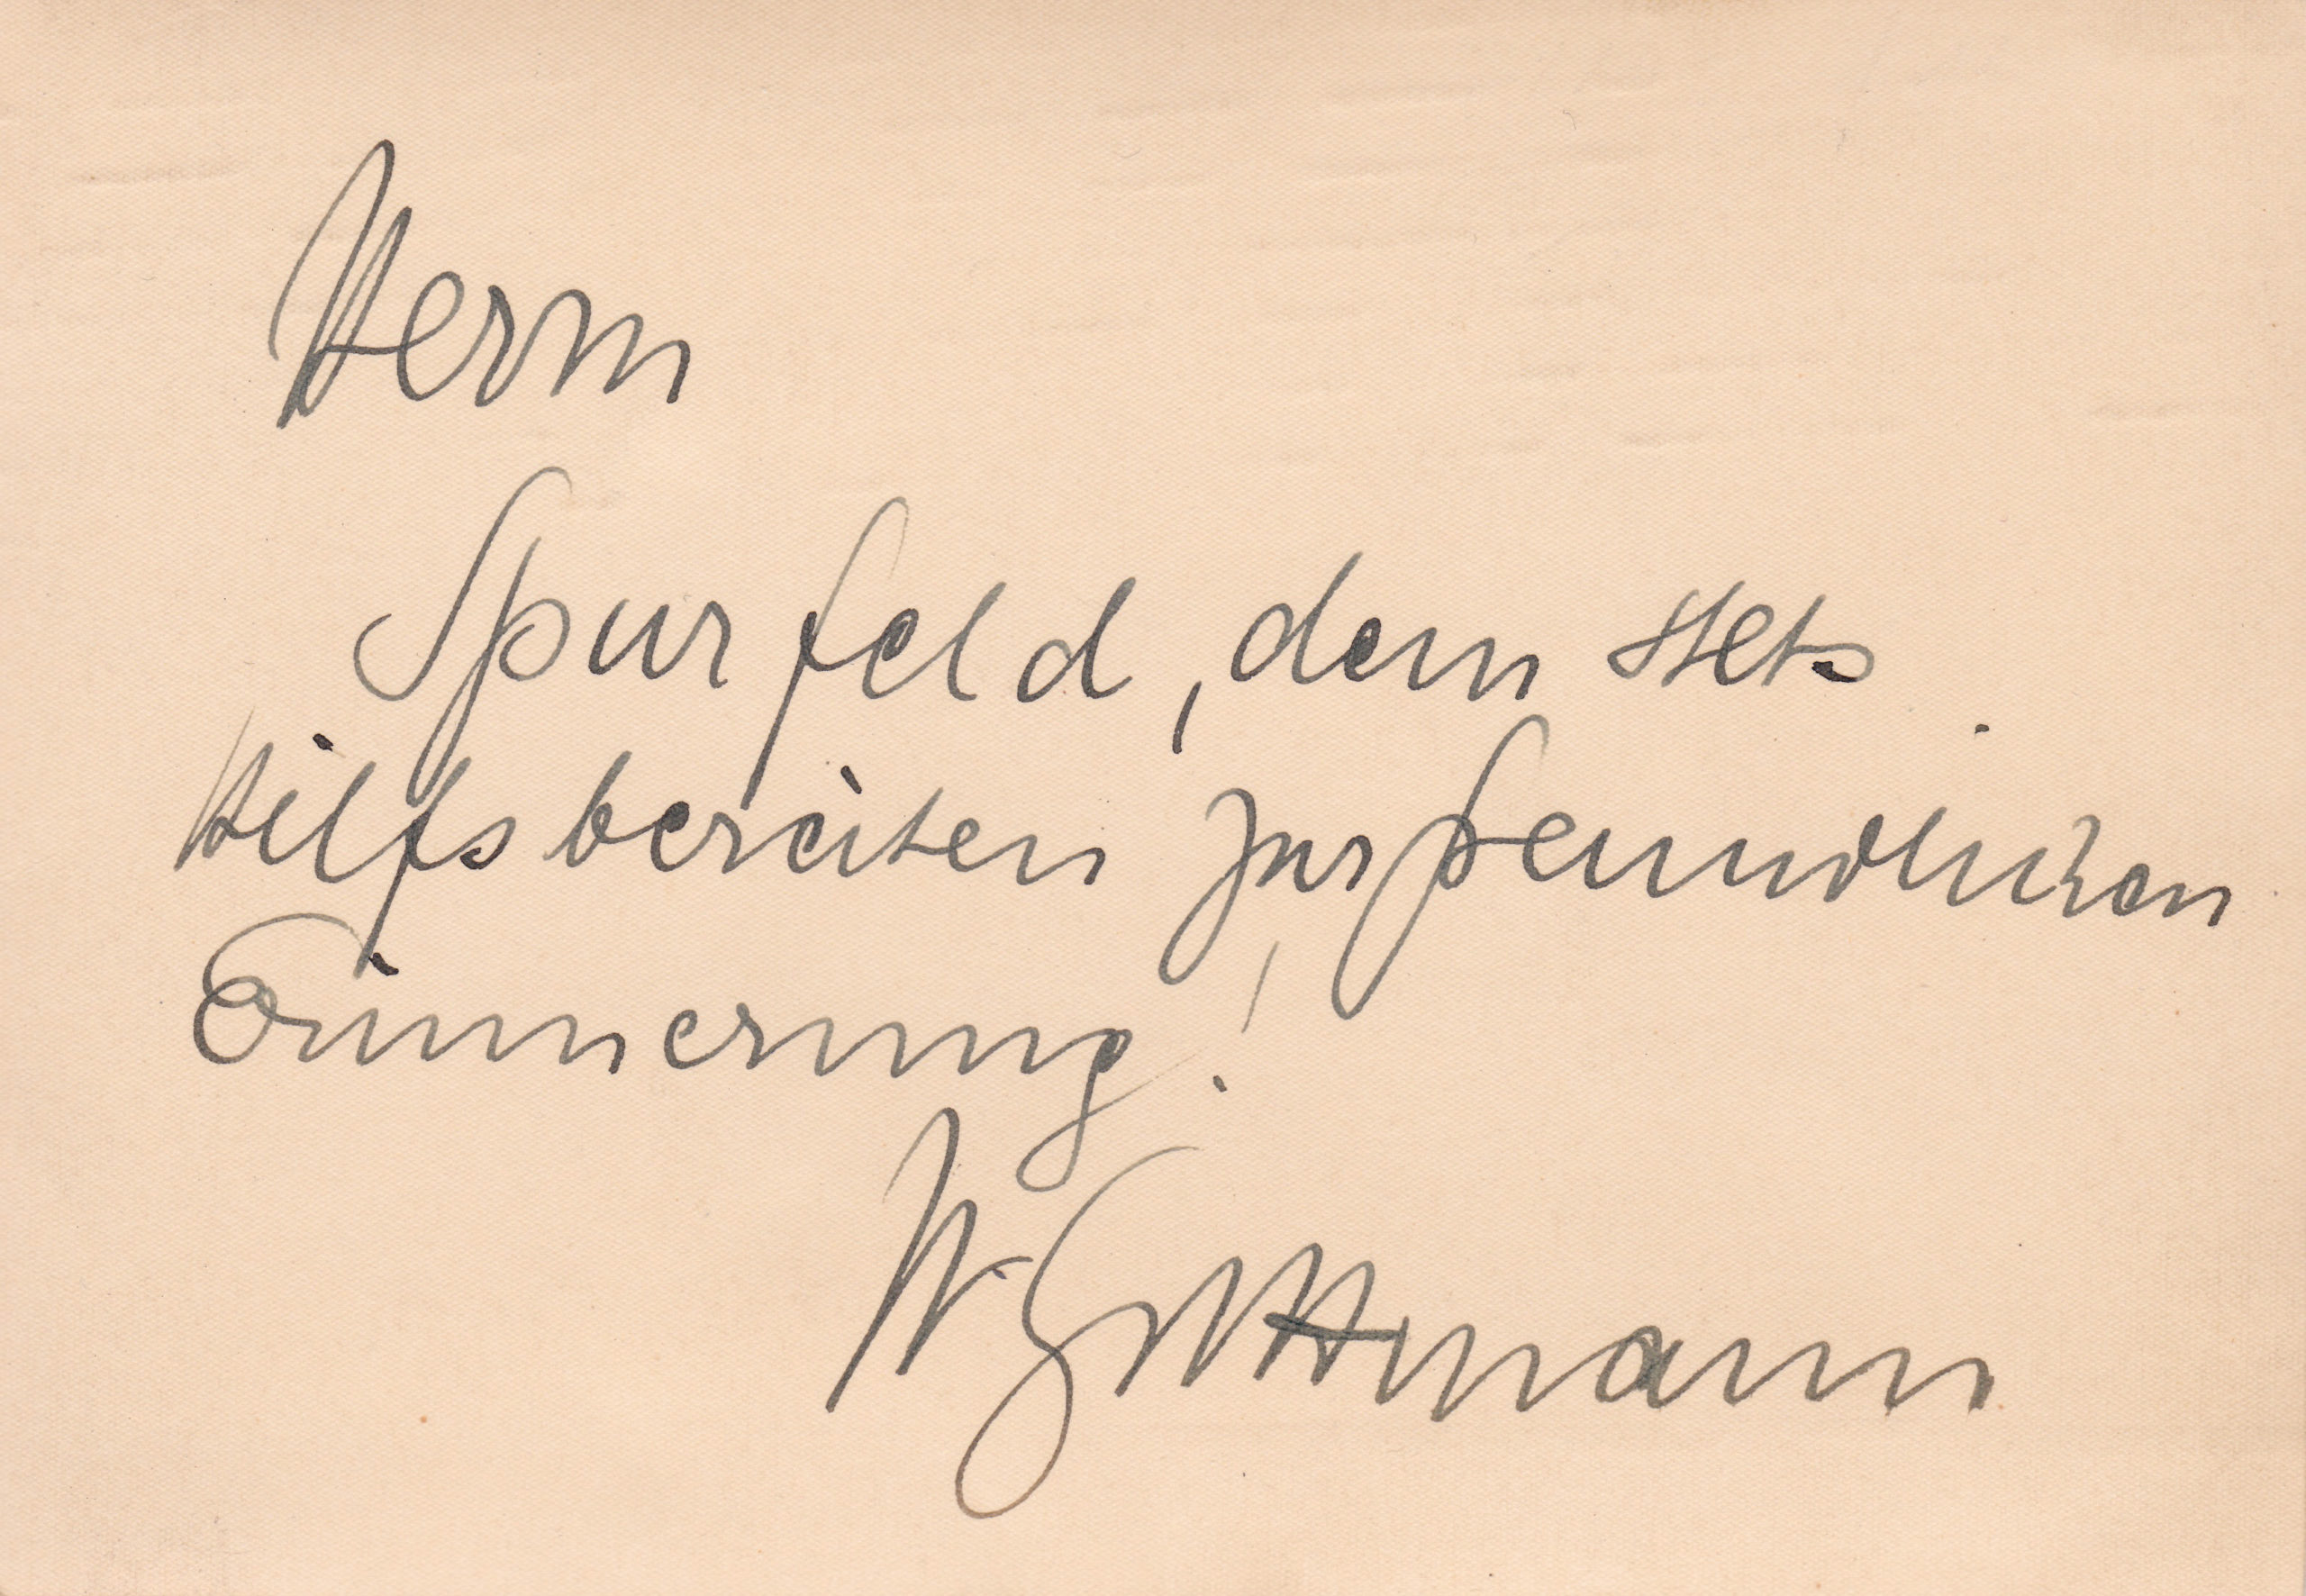 Herrn
Spurfeld, dem stets
hilfsbereiten zur freundlichen
Erinnerung!
W. Guttmann